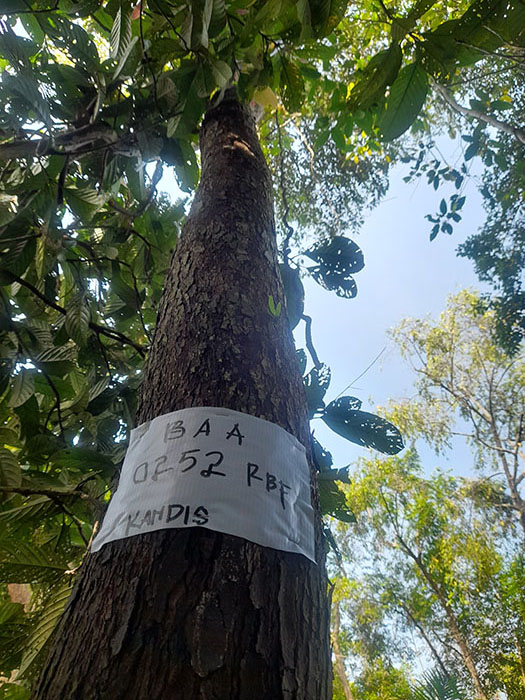 BAA
0252 RBF
KANDIS